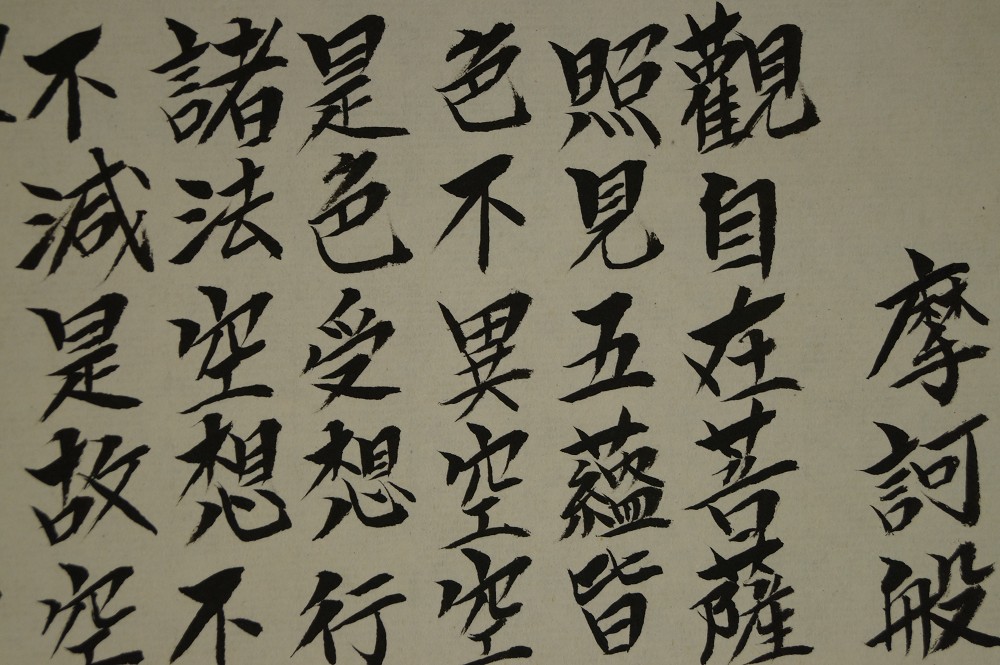 摩訶般
觀自在菩薩
照見五蘊皆
色不異空空
是色受想行
諸法空想不
不減是故空